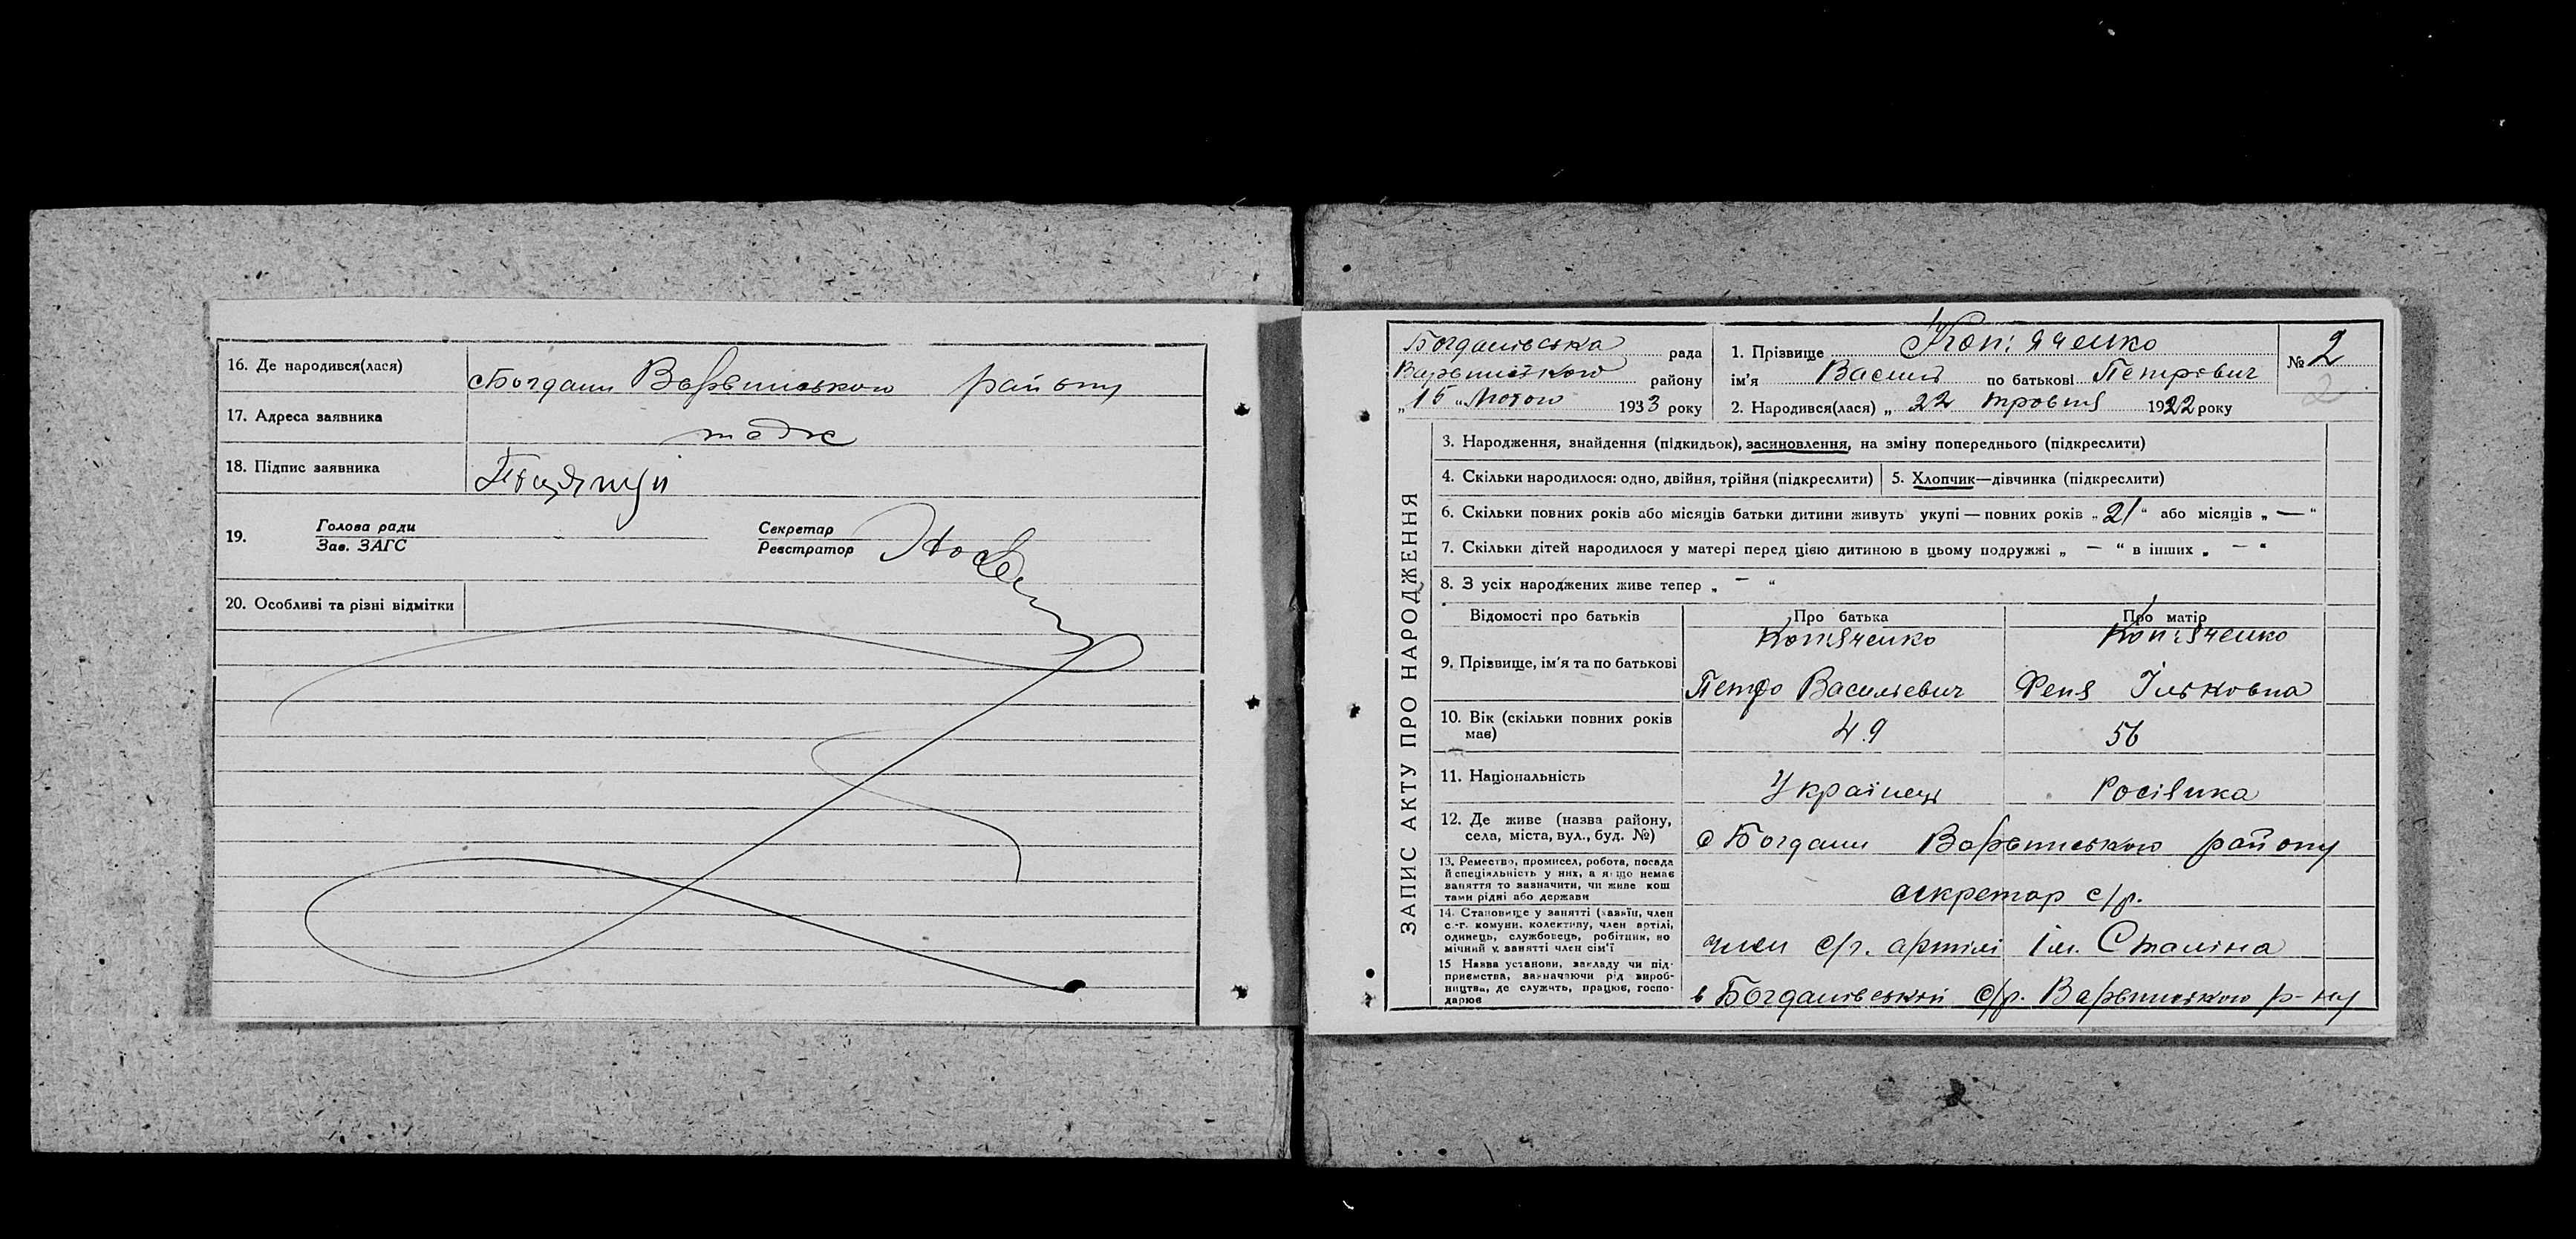 16. Де народився(лася) с Богдани Варвинського району
17. Адреса заявника тодж
18. Підпис заявника
19. Голова ради
Зав. ЗАГС
Секретар
Реєстратор
20. Особливі та різні відмітки
ЗАПИС АКТУ ПРО НАРОДЖЕННЯ
Богданівська рада
Варвинського району
„15 “ Лютого 1933 року
1. Прізвище Копіяченко
ім'я Василь по батькові Петрович
2. Народився(лася) „ 22 травня 1922 року
№ 2
2
3. Народження, знайдення (підкидьок), засиновлення, на зміну попереднього (підкреслити)
4. Скільки народилося: одно, двійня, трійня (підкреслити) 5. Хлопчик—дівчинка (підкреслити)
6. Скільки повних років або місяців батьки дитини живуть укупі — повних років „ 21 “ або місяців „ — “
7. Скільки дітей народилося у матері перед цією дитиною в цьому подружжі „ — “ в інших „ — “
8. З усіх народжених живе тепер „ — “
Відомості про батьків Про батька Про матір
Копіяченко Копіяченко
9. Прізвище, ім'я та по батькові Петро Васильевич Феня Ільковна
10. Вік (скільки повних років має) 49 56
11. Національність Українець Росіянка
12. Де живе (назва району,
села, міста, вул., буд. №) с Богдани Варвинського району
13. Ремество, промисел, робота, посада
й спеціяльність у них, а якщо немає
заняття то зазначити, чи живе кош
тами рідні або держави
секретар с/р.
14. Становище у занятті (хазяїн, член
с.-г. комуни, колективу, член артілі,
одинець, службовець, робітник, по
мічний у занятті член сім'ї
член с/г. артілі Ім. Сталіна
15 Назва установи, закладу чи під-
приємства, зазначаючи рід вироб-
ництва, де служить, працює, госпо-
дарює
в Богданівській с/р. Варвинського р-ну